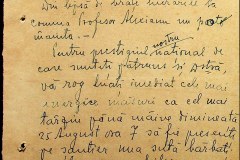 Din lipsă de brațe lucrările la
comuna Profesor Miceanu nu pot
înainta...
nostru
Pentru prestigiul național de
care sunteți pătruns și Dstră,
vă rog luați imediat cele mai
energice măsuri ca cel mai
târziu până mâine dimineață
25 August ora 7 să fie prezenți
pe șantier una sută bărbați